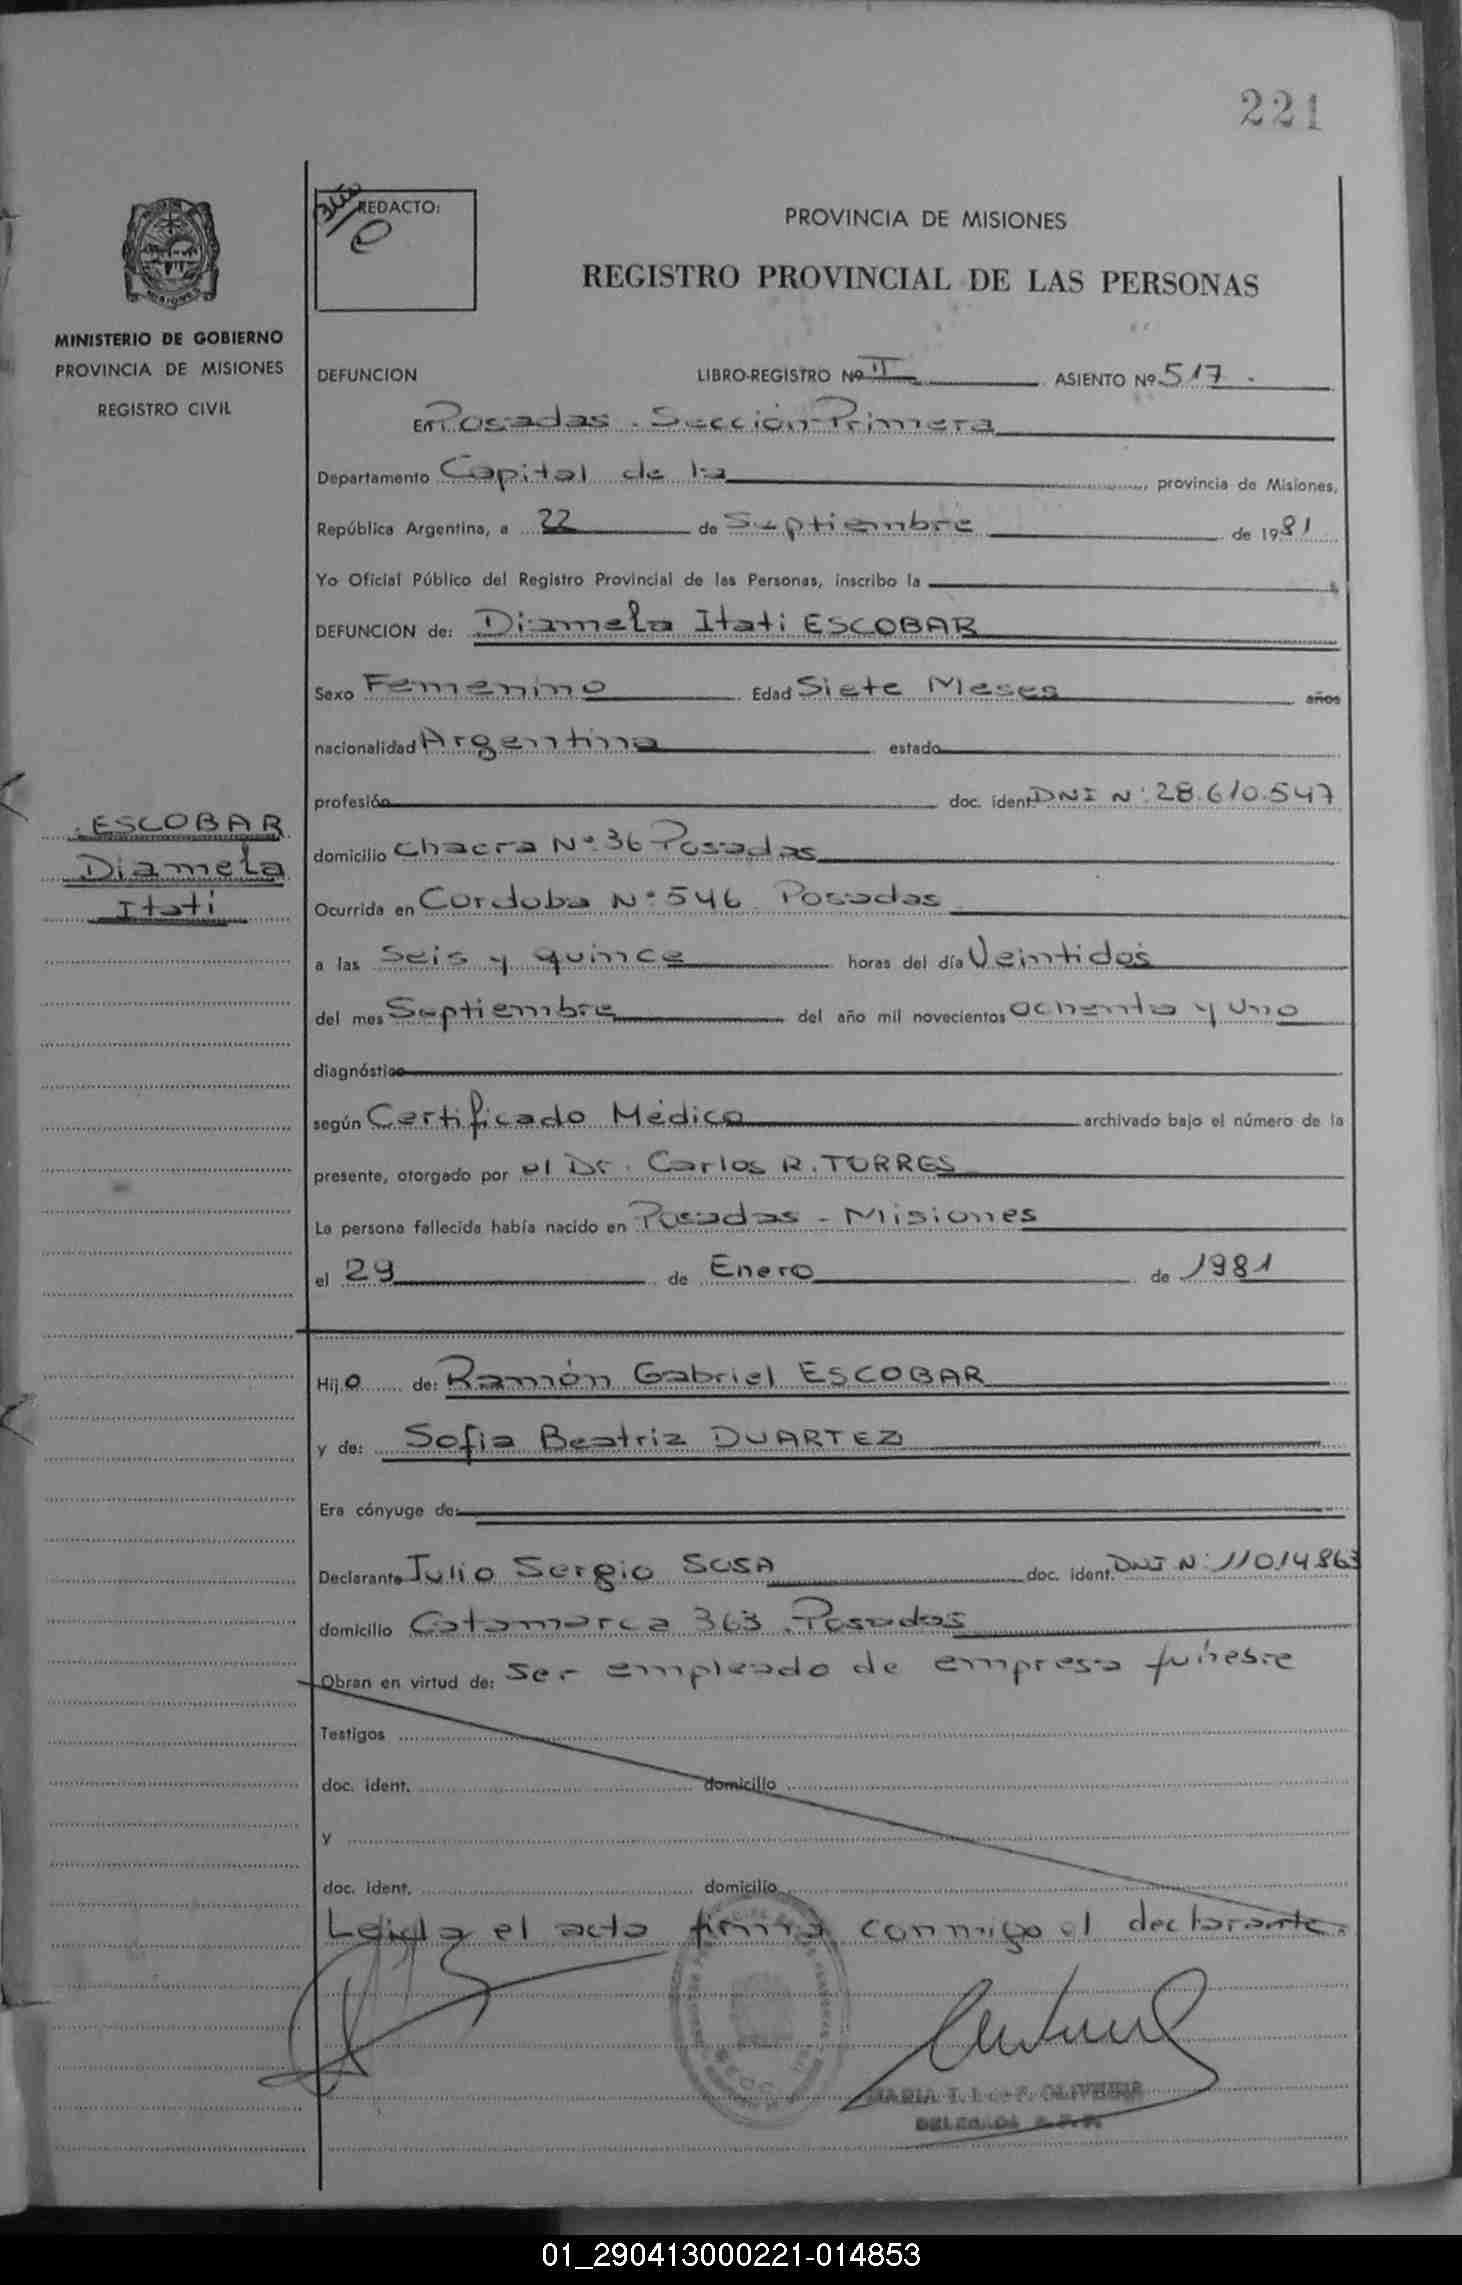 221
REDACTO:
PROVINCIA DE MISIONES
REGISTRO PROVINCIAL DE LAS PERSONAS
MINISTERIO DE GOBIERNO
PROVINCIA DE MISIONES
REGISTRO CIVIL
DEFUNCION LIBRO-REGISTRO Nº II ASIENTO Nº 517.
En Posadas. Sección Primera
Departamento Capital de la provincia de Misiones,
República Argentina, a 22 de Septiembre de 1981
Yo Oficial Público del Registro Provincial de las Personas, inscribo la
DEFUNCION de: Diamela Itati ESCOBAR
Sexo Femenino Edad Siete Meses años
nacionalidad Argentina estado
profesión doc. ident. DNI Nº 28.610.547
ESCOBAR
Diamela
Itati
domicilio Chacra Nº 36 Posadas
Ocurrida en Cordoba Nº 546 Posadas
a las Seis y quince horas del día Veintidos
del mes Septiembre del año mil novecientos ochenta y uno
diagnóstico
según Certificado Médico archivado bajo el número de la
presente, otorgado por el Dr. Carlos R. TORRES
La persona fallecida había nacido en Posadas - Misiones
el 29 de Enero de 1981
Hij o de: Ramón Gabriel ESCOBAR
y de: Sofia Beatriz DUARTEZ
Era cónyuge de:
Declarante Julio Sergio SOSA doc. ident. DNI Nº 11014863
domicilio Catamarca 363. Posadas
Obran en virtud de: Ser empleado de empresa fúnebre
Testigos
doc. ident. domicilio
y
doc. ident. domicilio
Leida el acta firma conmigo el declarante.
MARIA T. OLIVEIRA
DELEGADA R.P.P.
01_290413000221-014853